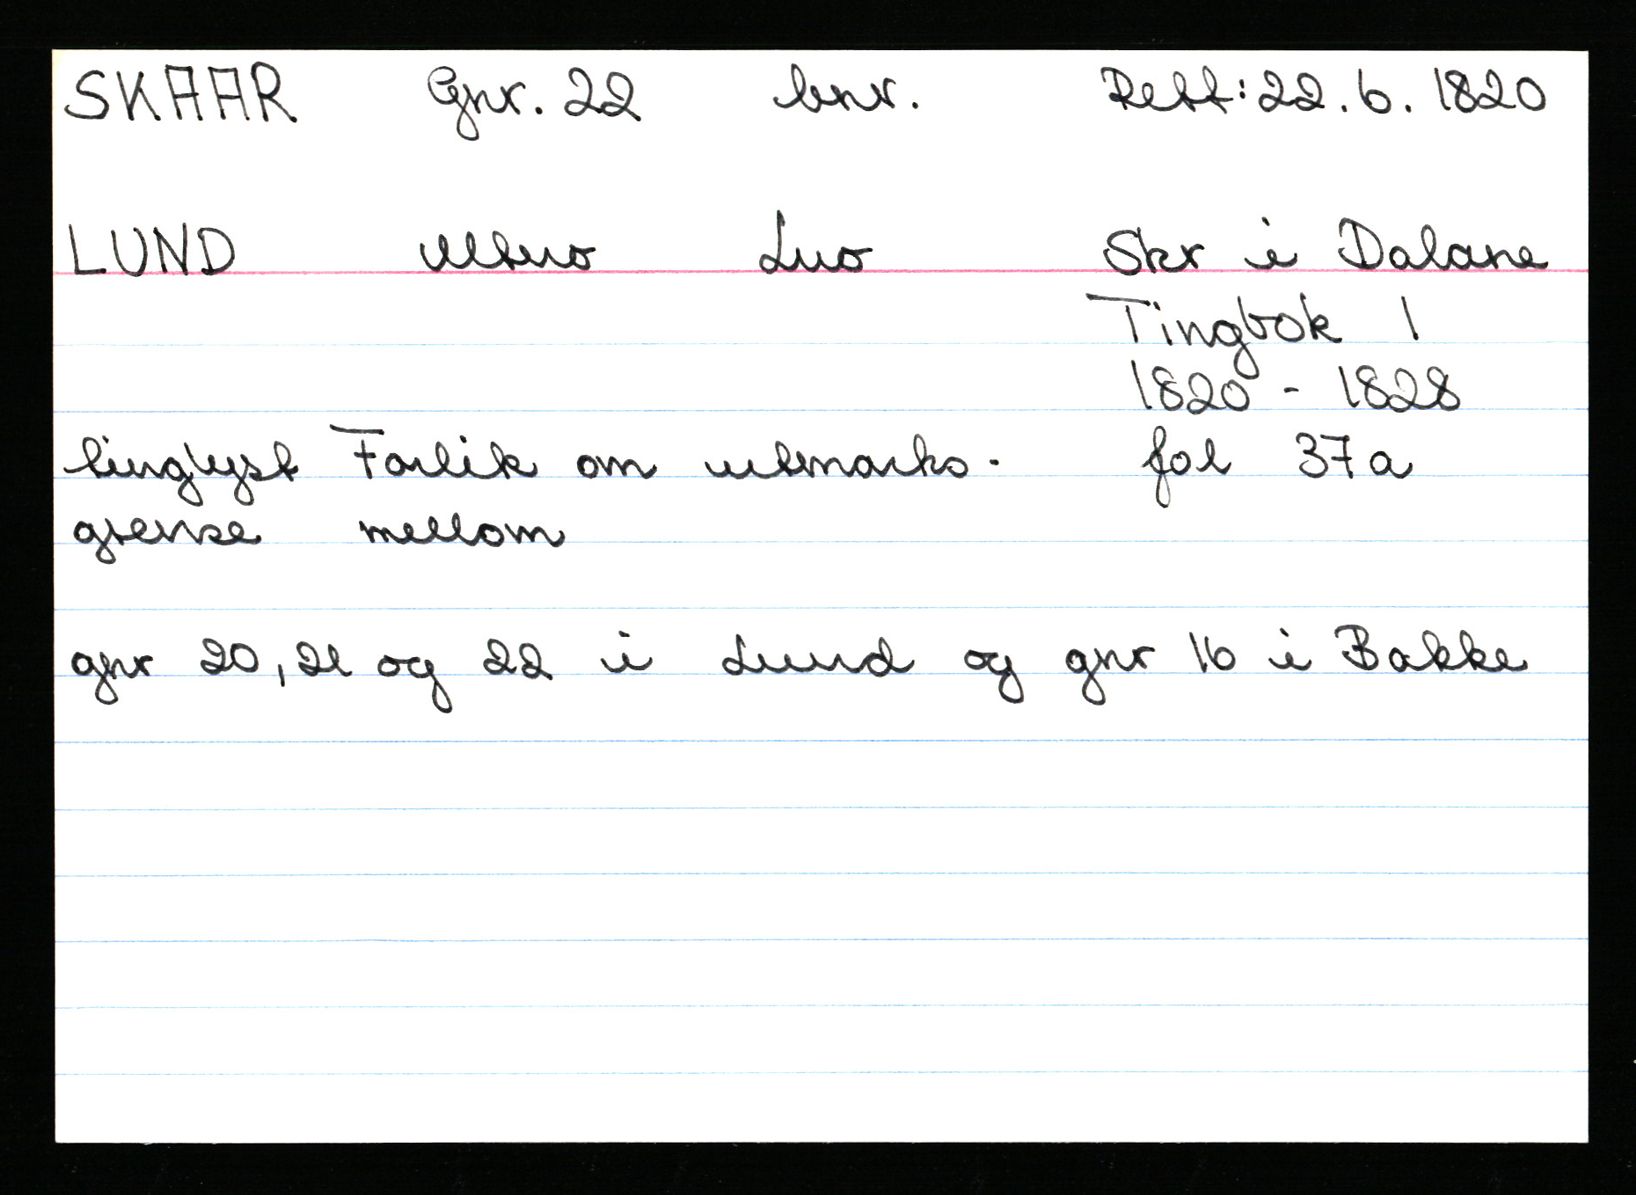 SKAAR Gnr. 22 bnr. Rett: 22.6.1820
LUND Utmo Luo Skr i Dalane
Tingbok 1
1820 - 1828
tinglyst Forlik om utmarks- fol 37a
grense mellom
gnr 20, 21 og 22 i Lund og gnr 16 i Bakke